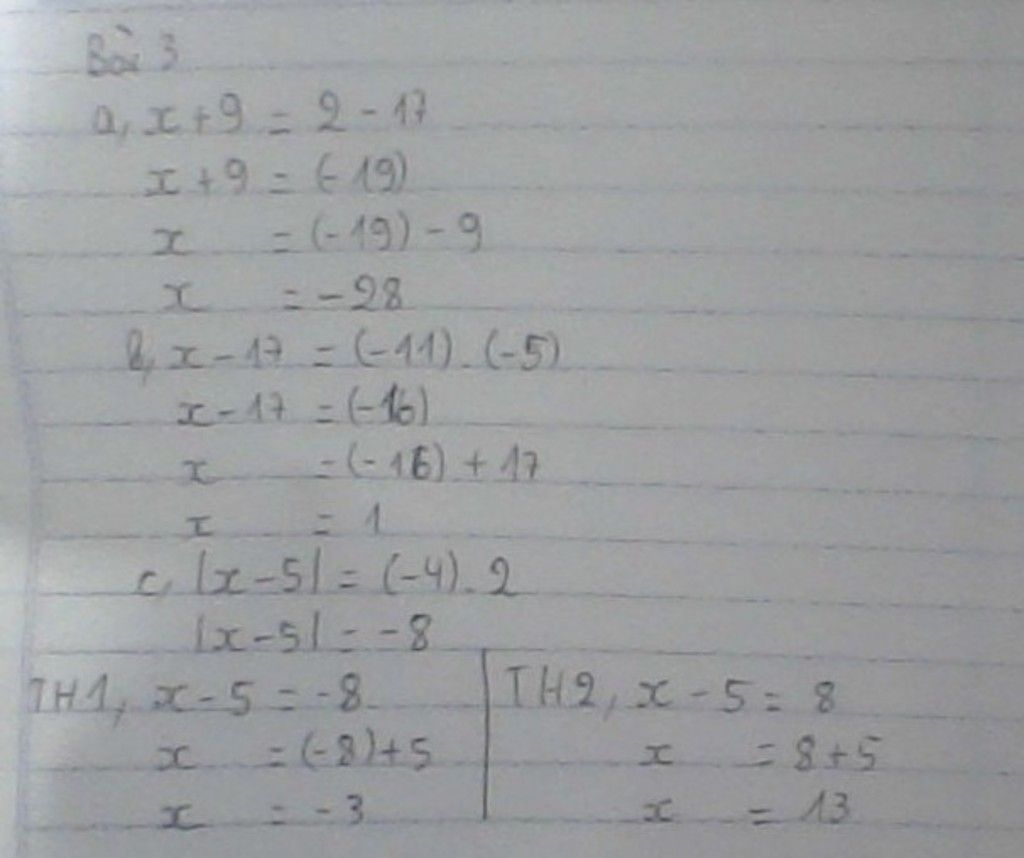 Bài 3
a, x + 9 = 2 - 17
x + 9 = (-19)
x = (-19) - 9
x = -28
b, x - 17 = (-11) . (-5)
x - 17 = (-16)
x = (-16) + 17
x = 1
c, |x - 5| = (-4) . 2
|x - 5| = -8
TH1, x - 5 = -8
x = (-8) + 5
x = -3
TH2, x - 5 = 8
x = 8 + 5
x = 13